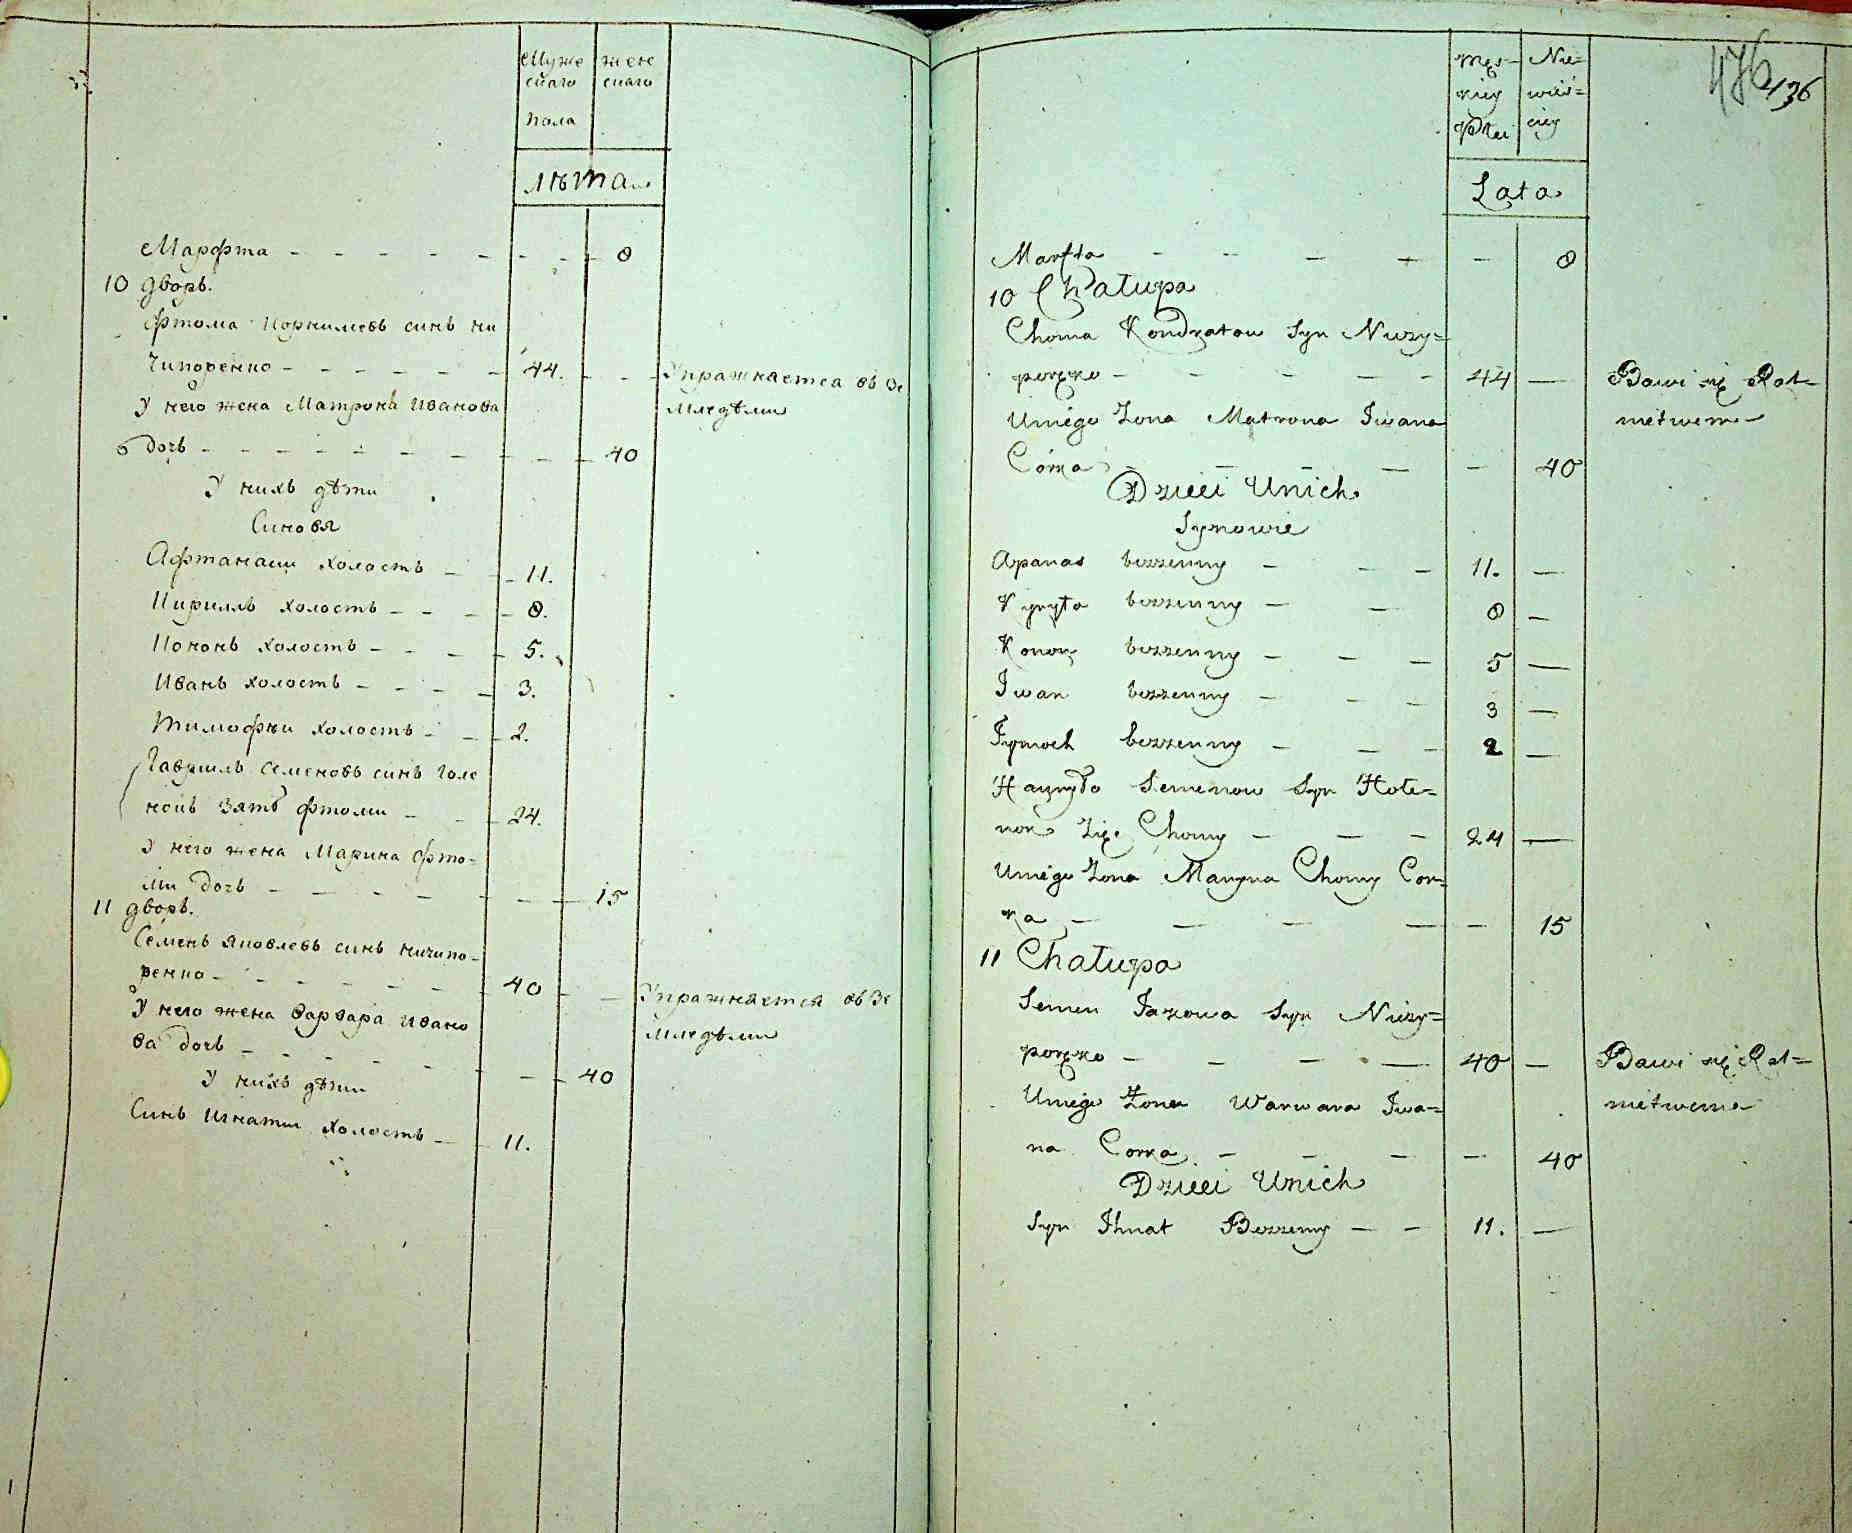 Муже
скаго
пола
жен
скаго
лѣта
Марфта 8
10 дворъ.
Фтома Корнилевъ синъ ни
чипоренко 44. Упражнается въ зе
У него жена Матрона Иванова мледѣлии
дочь 40
У нихъ дѣти
Синовя
Афтанаси холостъ 11.
Кирилъ холостъ 8.
Кононъ холостъ 5.
Иванъ холостъ 3.
Тимофѣи холостъ 2.
Гаврилъ Семеновъ синъ Голе
нокъ зять Фтоми 24.
У него жена Марина Фто=
ми дочь 15
11 дворъ.
Семенъ Яковлевъ синъ ничипо-
ренко 40 Упражняется въ зе
У него жена Варвара Ивано мледѣлии
ва дочь 40
У нихъ дѣти
Синъ Игнати холостъ 11.
476
136
Męs-
kiey
Płci
Nie=
wieś=
ciey
Lata
Marfta 8
10 Chałupa
Choma Kondratow Syn Niczy=
poręko 44 Bawi się Rol=
Uniego Zona Matrona Iwana nictwem
Córka 40
Dzieci Unich
Synowie
Apanas bezzenny 11.
Kyryło bezzenny 8
Konon bezzenny 5
Iwan bezzenny 3
Tymoch bezzenny 2
Hawryło Semenow Syn Hole=
nok Zięć Chomy 24
Uniego Zona Maryna Chomy Cor=
ka 15
11 Chałupa
Semen Jakowa Syn Niczy=
poręko 40 Bawi się Rol=
Uniego Zona Warwara Iwa= nictwem
na Corka 40
Dzieci Unich
Syn Ihnat Bezzeny 11.